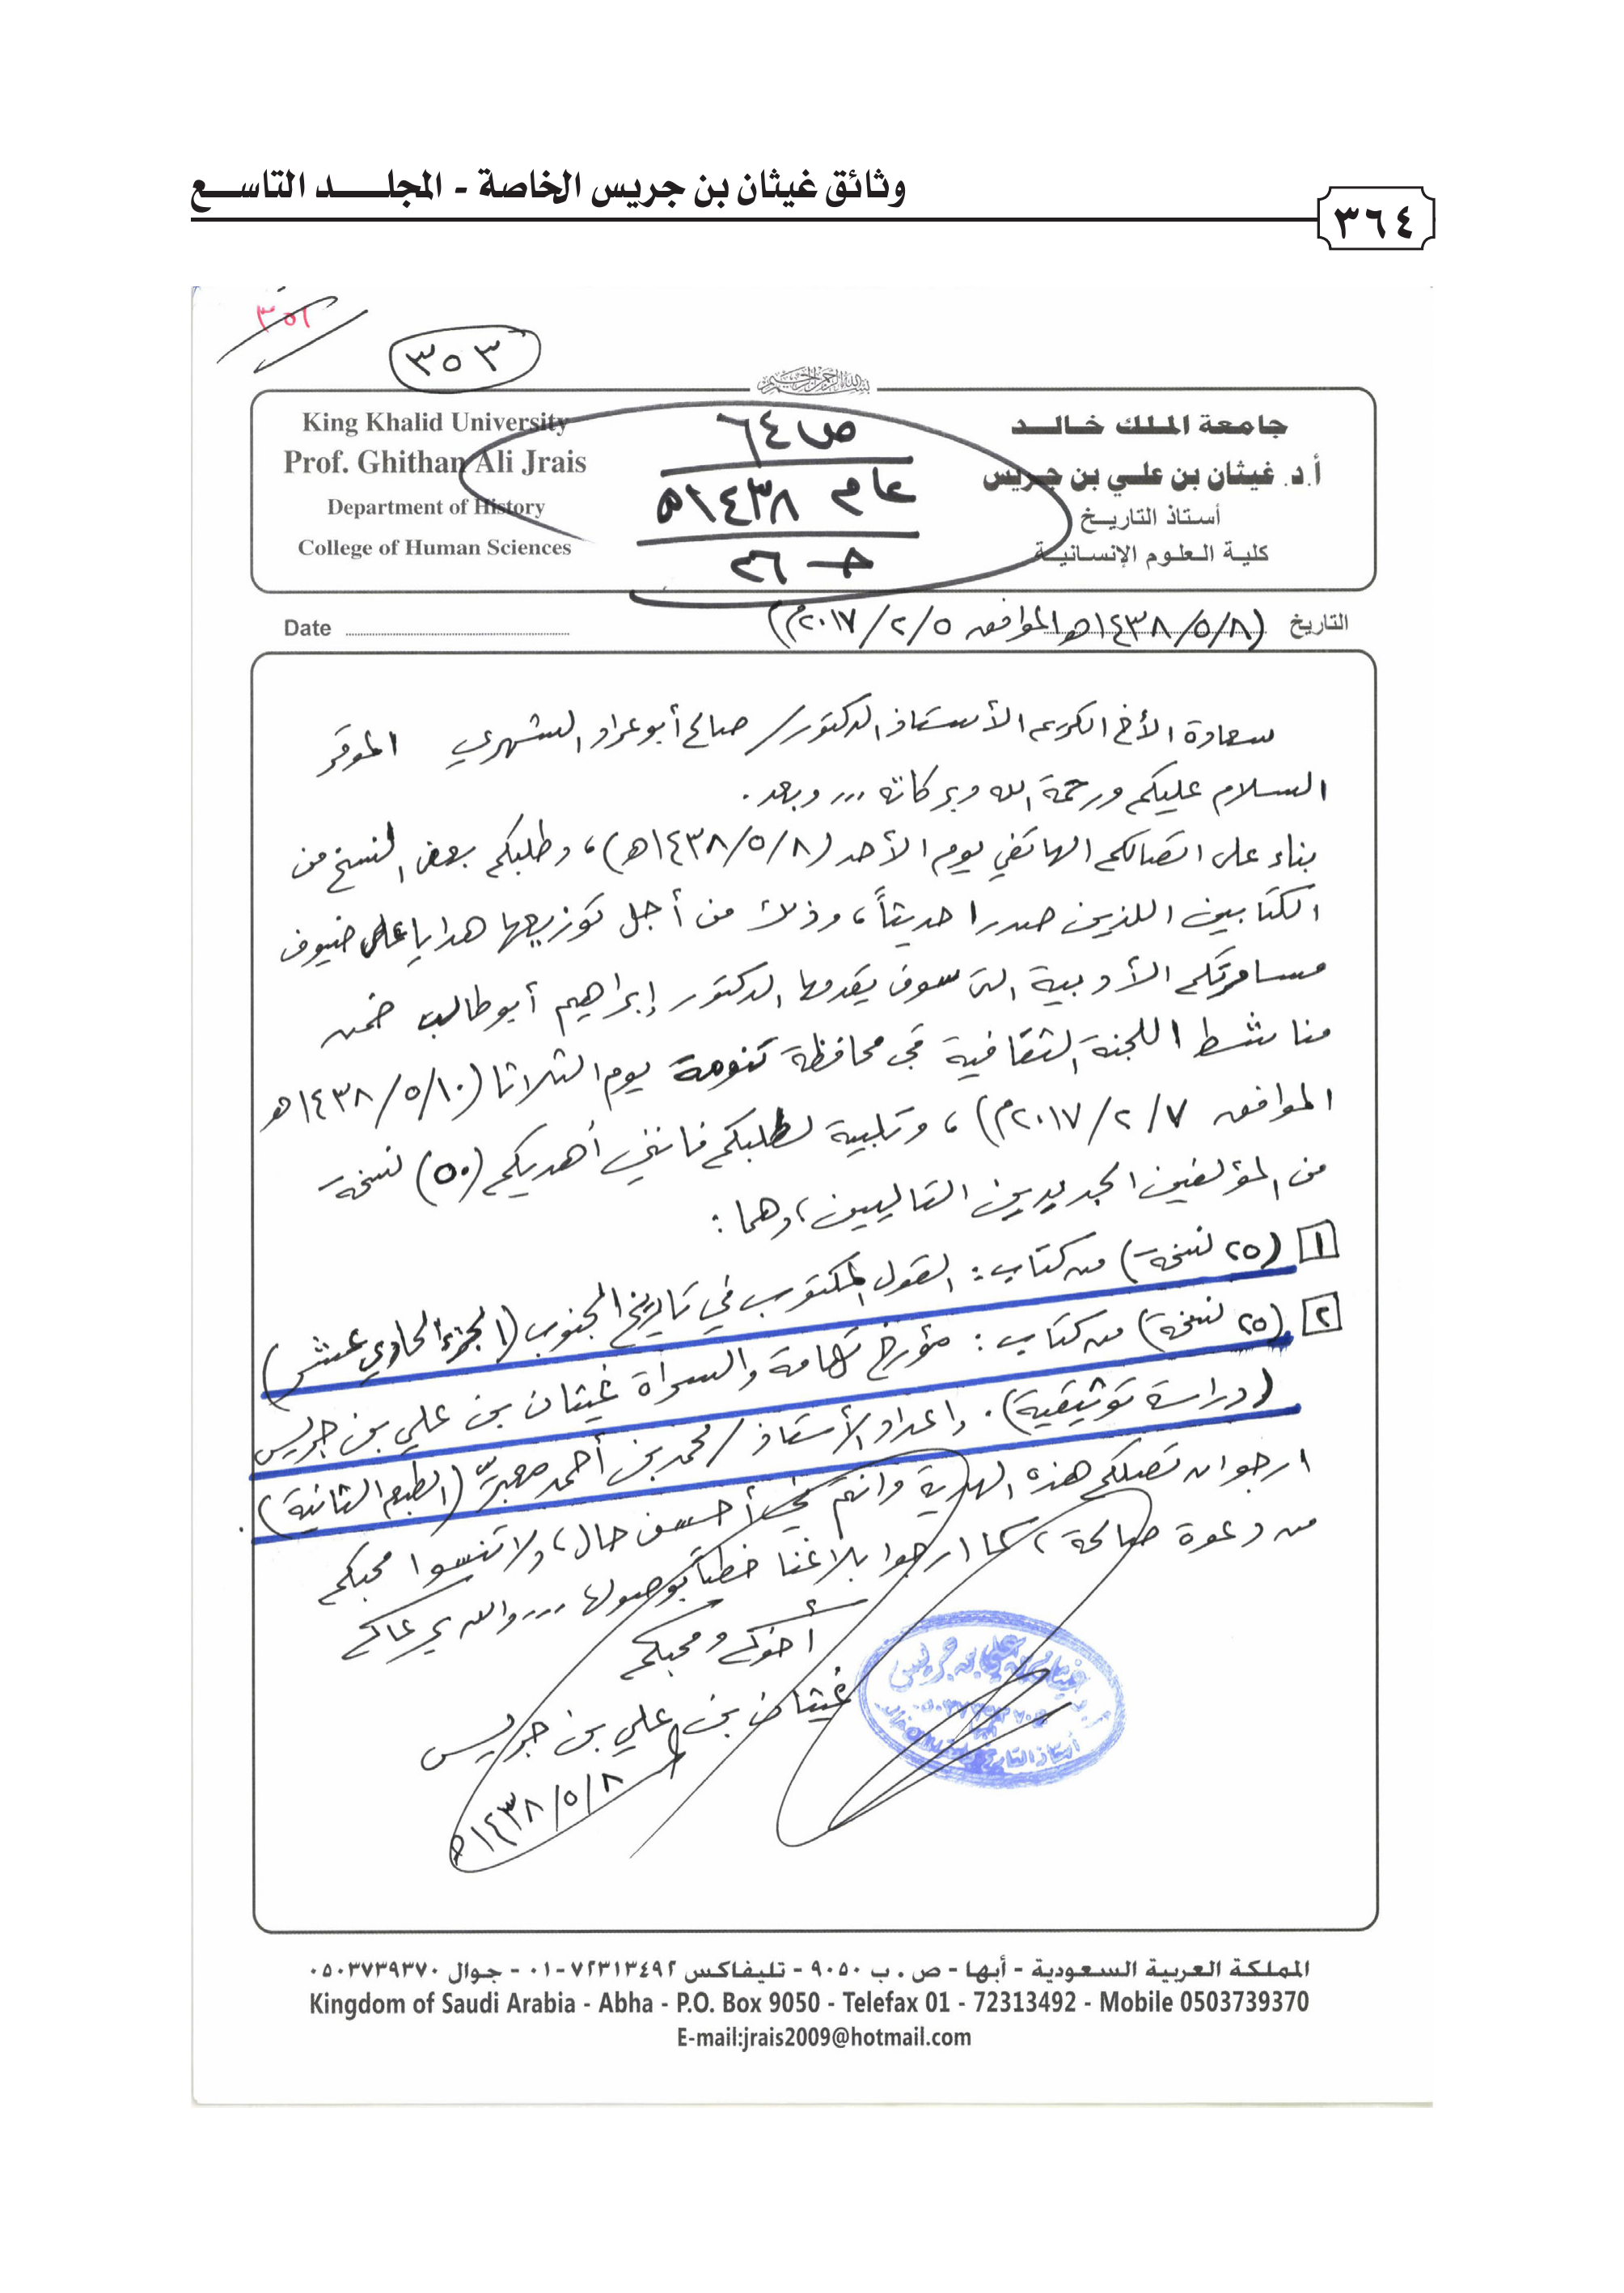 وثائق غيثان بن جريس الخاصة - المجلــد التاســع
٣٦٤
٣٥٢
٣٥٣
بسم الله الرحمن الرحيم
جامعة الملك خالد
أ.د. غيثان بن علي بن جريس
أستاذ التاريخ
كلية العلوم الإنسانية
ص ٦٤
عام ١٤٣٨هـ
King Khalid University
Prof. Ghithan Ali Jrais
Department of History
College of Human Sciences
التاريخ (٨/٥/١٤٣٨هـ الموافق ٥/٢/٢٠١٧م)
Date
سعادة الأخ الكريم الأستاذ الدكتور/ صالح أبو عراد الشهري الموقر
السلام عليكم ورحمة الله وبركاته ... وبعد.
بناء على اتصالكم الهاتفي يوم الأحد (٨/٥/١٤٣٨هـ)، وطلبكم بعض النسخ من
الكتابين اللذين صدرا حديثاً، وذلك من أجل توزيعها هدايا على ضيوف
مسامرتكم الأدبية التي سوف يقدمها الدكتور إبراهيم أبو طالب ضمن
مناشط اللجنة الثقافية في محافظة تنومة يوم الثلاثا (١٠/٥/١٤٣٨هـ
الموافق ٧/٢/٢٠١٧م)، وتلبية لطلبكم فانني أهديكم (٥٠) نسخة
من المؤلفين الجديدين التاليين، وهما:
١ (٢٥ نسخة) من كتاب: القول المكتوب في تاريخ الجنوب (الجزء الحادي عشر)
٢ (٢٥ نسخة) من كتاب: مؤرخ تهامة والسراة غيثان بن علي بن جريس
(دراسة توثيقية). واعداد الأستاذ/ محمد بن أحمد معبّر (الطبعة الثانية).
ارجو ان تصلكم هذه الهدية وانتم في أحسن حال، ولا تنسوا محبكم
من دعوة صالحة، كما ارجوا بلاغنا خطياً بوصولها .... والله يرعاكم
أخوكم ومحبكم
غيثان بن علي بن جريس
٨/٥/١٤٣٨هـ
غيثان بن علي بن جريس
المملكة العربية السعودية - أبها - ص . ب ٩٠٥٠ - تليفاكس ٧٢٣١٣٤٩٢-٠١ - جوال ٠٥٠٣٧٣٩٣٧٠
Kingdom of Saudi Arabia - Abha - P.O. Box 9050 - Telefax 01 - 72313492 - Mobile 0503739370
E-mail:jrais2009@hotmail.com